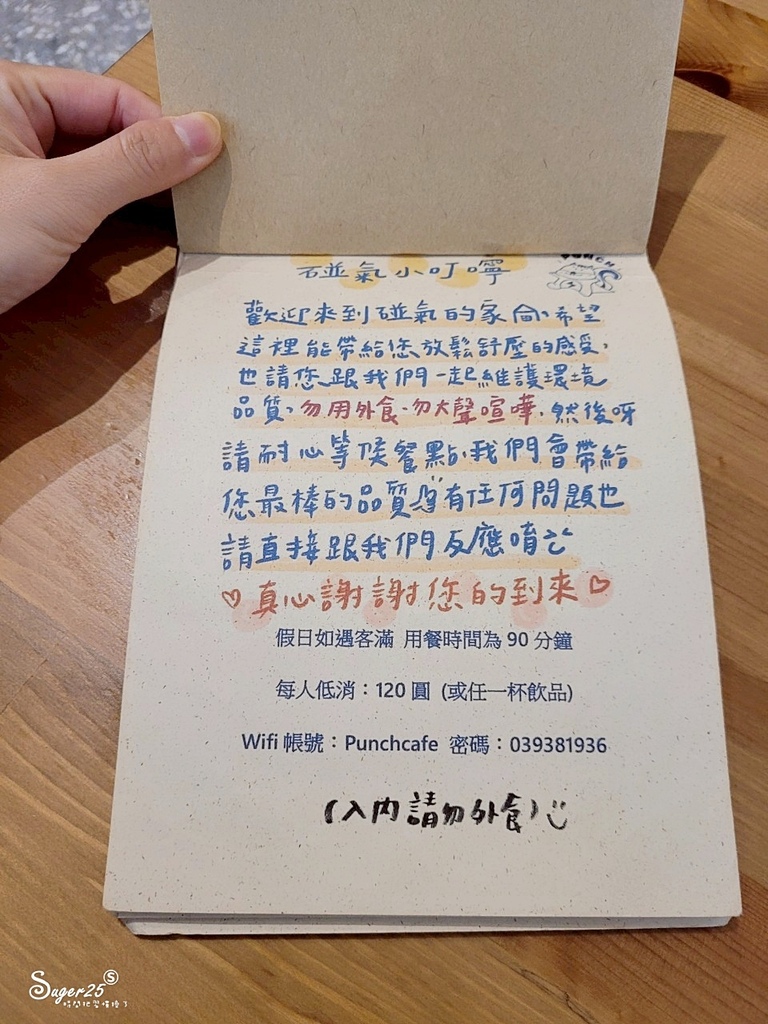 碰氣小叮嚀
PUNCH
歡迎來到碰氣的家，希望
這裡能帶給您放鬆舒壓的感受，
也請您跟我們一起維護環境
品質，勿用外食、勿大聲喧嘩，然後呀
請耐心等候餐點，我們會帶給
您最棒的品質 有任何問題也
請直接跟我們反應唷
♡真心謝謝您的到來♡
假日如遇客滿 用餐時間為 90 分鐘
每人低消：120 圓 (或任一杯飲品)
Wifi 帳號：Punchcafe 密碼：039381936
(入內請勿外食)
Suger25